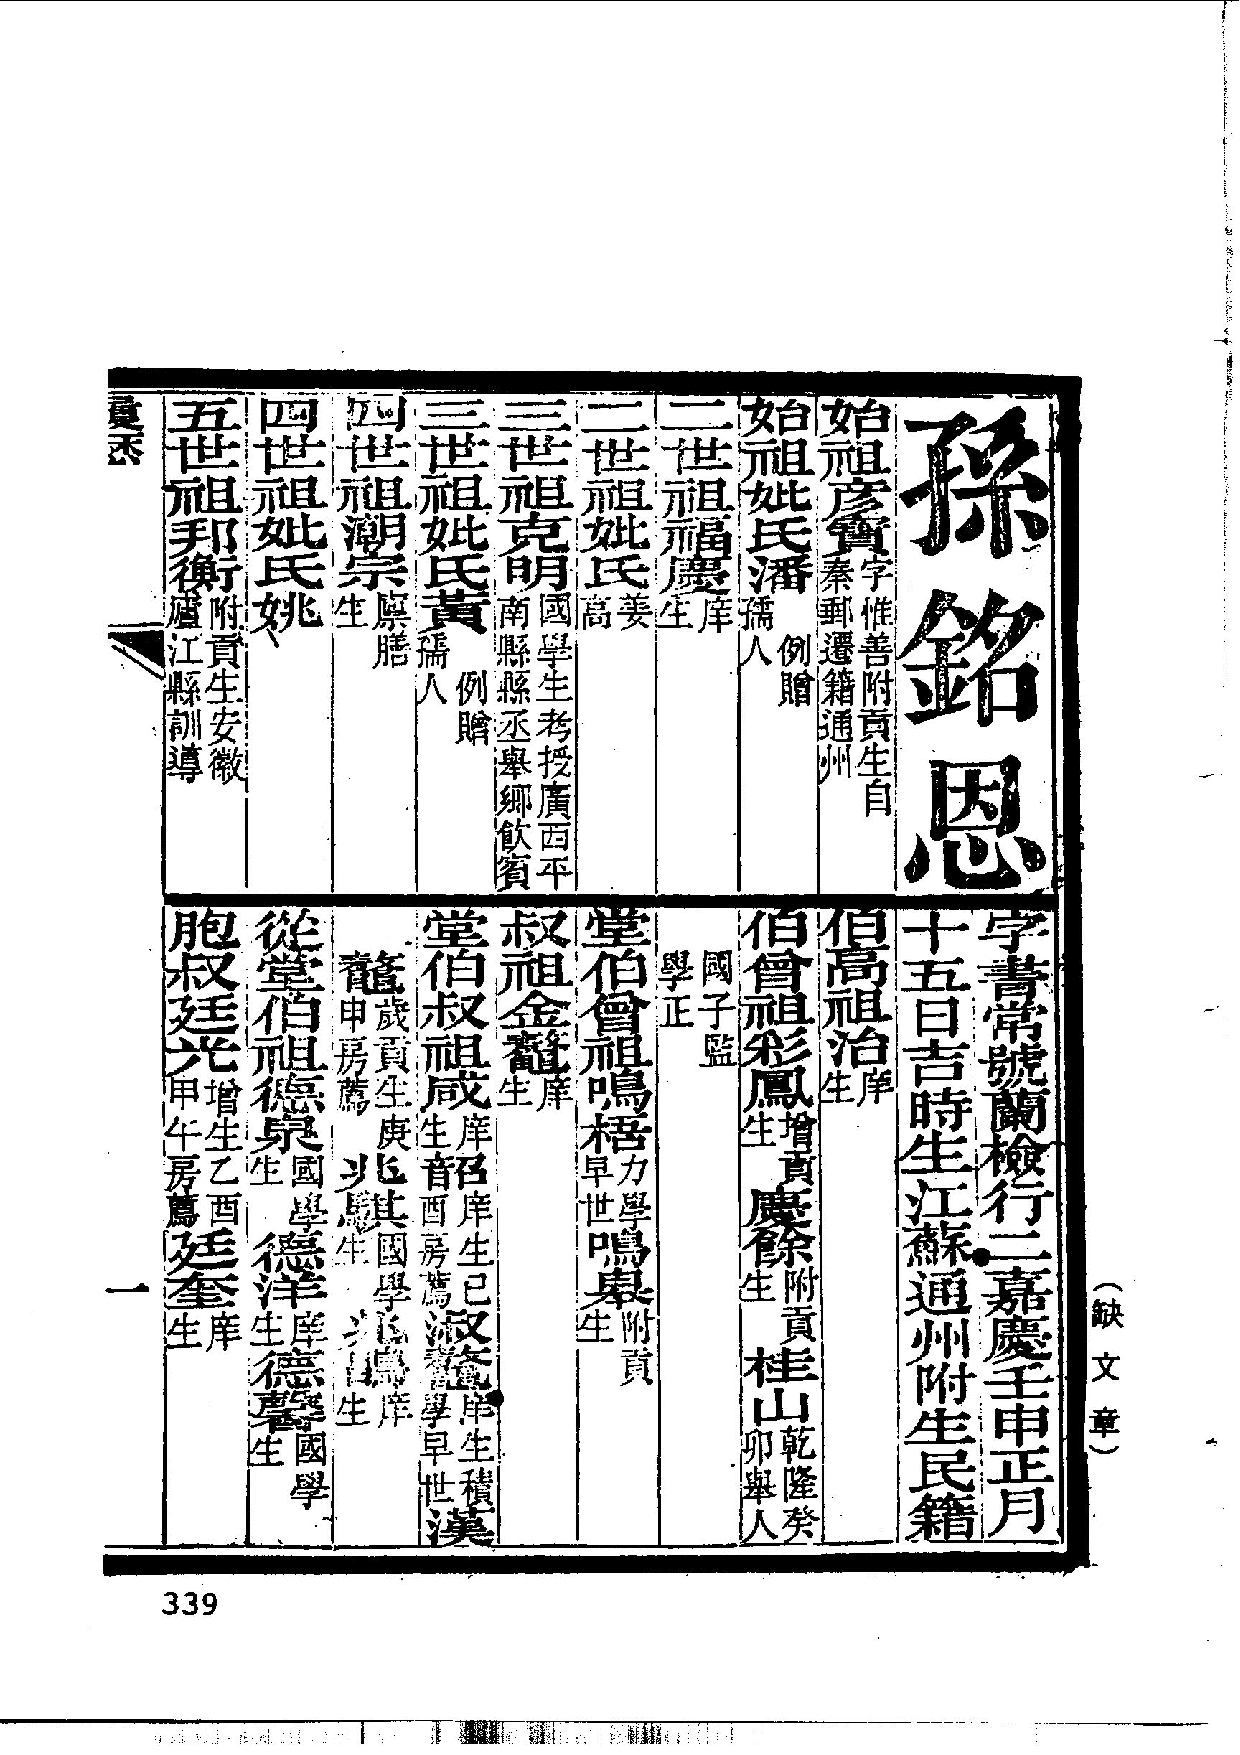 孫銘恩
字書常號蘭檢行二嘉慶壬申正月
十五日吉時生江蘇通州附生民籍
始祖彥寶字惟善附貢生自秦郵遷籍通州
始祖妣氏潘例贈孺人
二世祖福慶庠生
二世祖妣氏姜高
三世祖克明國學生考授廣西平南縣縣丞舉鄉飲賓
三世祖妣氏黃例贈孺人
四世祖潮宗廪膳生
四世祖妣氏姚
五世祖邦衡附貢生安徽廬江縣訓導
伯高祖治庠生
伯曾祖彩鳳增貢生慶餘附貢生桂山乾隆癸卯舉人
國子監學正
堂伯曾祖鳴梧力學早世鳴臯附貢生
叔祖金鼇庠生
堂伯叔祖咸庠生韶音庠生己酉房薦淑鼇庠生積學早世漢
鼇歲貢生庚申房薦兆其國學生兆
從堂伯祖德泉國學生德洋庠生德馨國學生
胞叔廷光增生乙酉甲午房薦廷奎庠生
一
（缺文章）
339